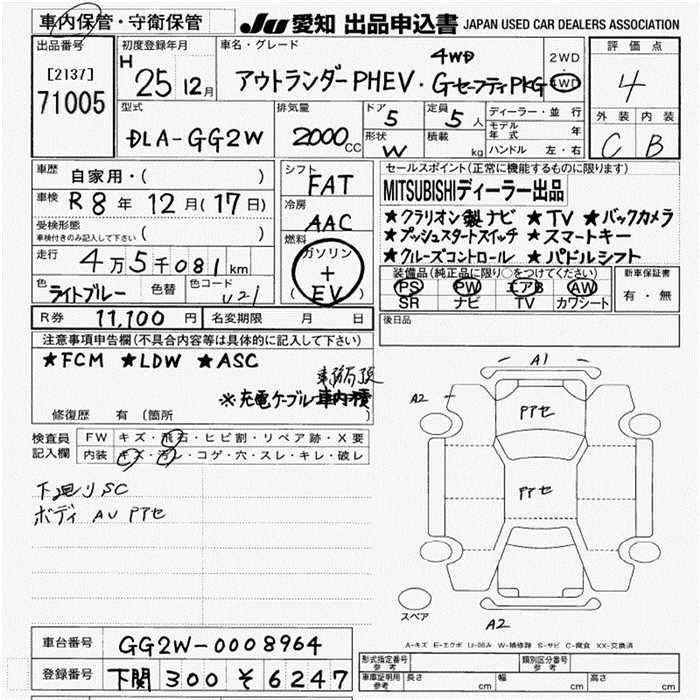 車内保管・守衛保管
JU 愛知 出品申込書 JAPAN USED CAR DEALERS ASSOCIATION
出品番号
[2137]
71005
初度登録年月
H 25 12月
車名・グレード
4WD
アウトランダーPHEV・GセーフティPKG
2WD
4WD
評価点
4
外装 内装
C B
型式
DLA-GG2W
排気量
2000cc
ドア
5
定員
5人
形状
W
積載
kg
ディーラー・並行
モデル年式 年
ハンドル 左・右
車歴
自家用・( )
車検
R 8年 12月(17日)
受検形態
車検付きのみ記入して下さい ( )
走行
4万5千081km
色
ライトブルー
色替
色コード
U21
シフト
FAT
冷房
AAC
燃料
ガソリン
+
(EV)
セールスポイント(正常に機能するものに限ります)
MITSUBISHIディーラー出品
★クラリオン製ナビ ★TV ★バックカメラ
★プッシュスタートスイッチ ★スマートキー
★クルーズコントロール ★パドルシフト
装備品(純正品に限り○をつけてください)
PS PW エアB AW
SR ナビ TV カワシート
新車保証書
有・無
R券 11,100円
名変期限 月 日
後日品
注意事項申告欄(不具合内容等は具体的に記入して下さい)
★FCM ★LDW ★ASC
※充電ケーブル車内積
修復歴 有(箇所 )
検査員記入欄
FW キズ・飛石・ヒビ割・リペア跡・X要
内装 キズ・汚レ・コゲ・穴・スレ・キレ・破レ
下廻りSC
ボディ AU Pアセ
A1
A2
Pアセ
Pアセ
スペア
A2
A-キズ E-エクボ U-凹み W-補修跡 S-サビ C-腐食 XX-交換済
車台番号 GG2W-0008964
登録番号 下関 300 そ 6247
型式指定番号 参考
類別区分番号 参考
車庫証明用 参考
長さ cm 幅 cm 高さ cm